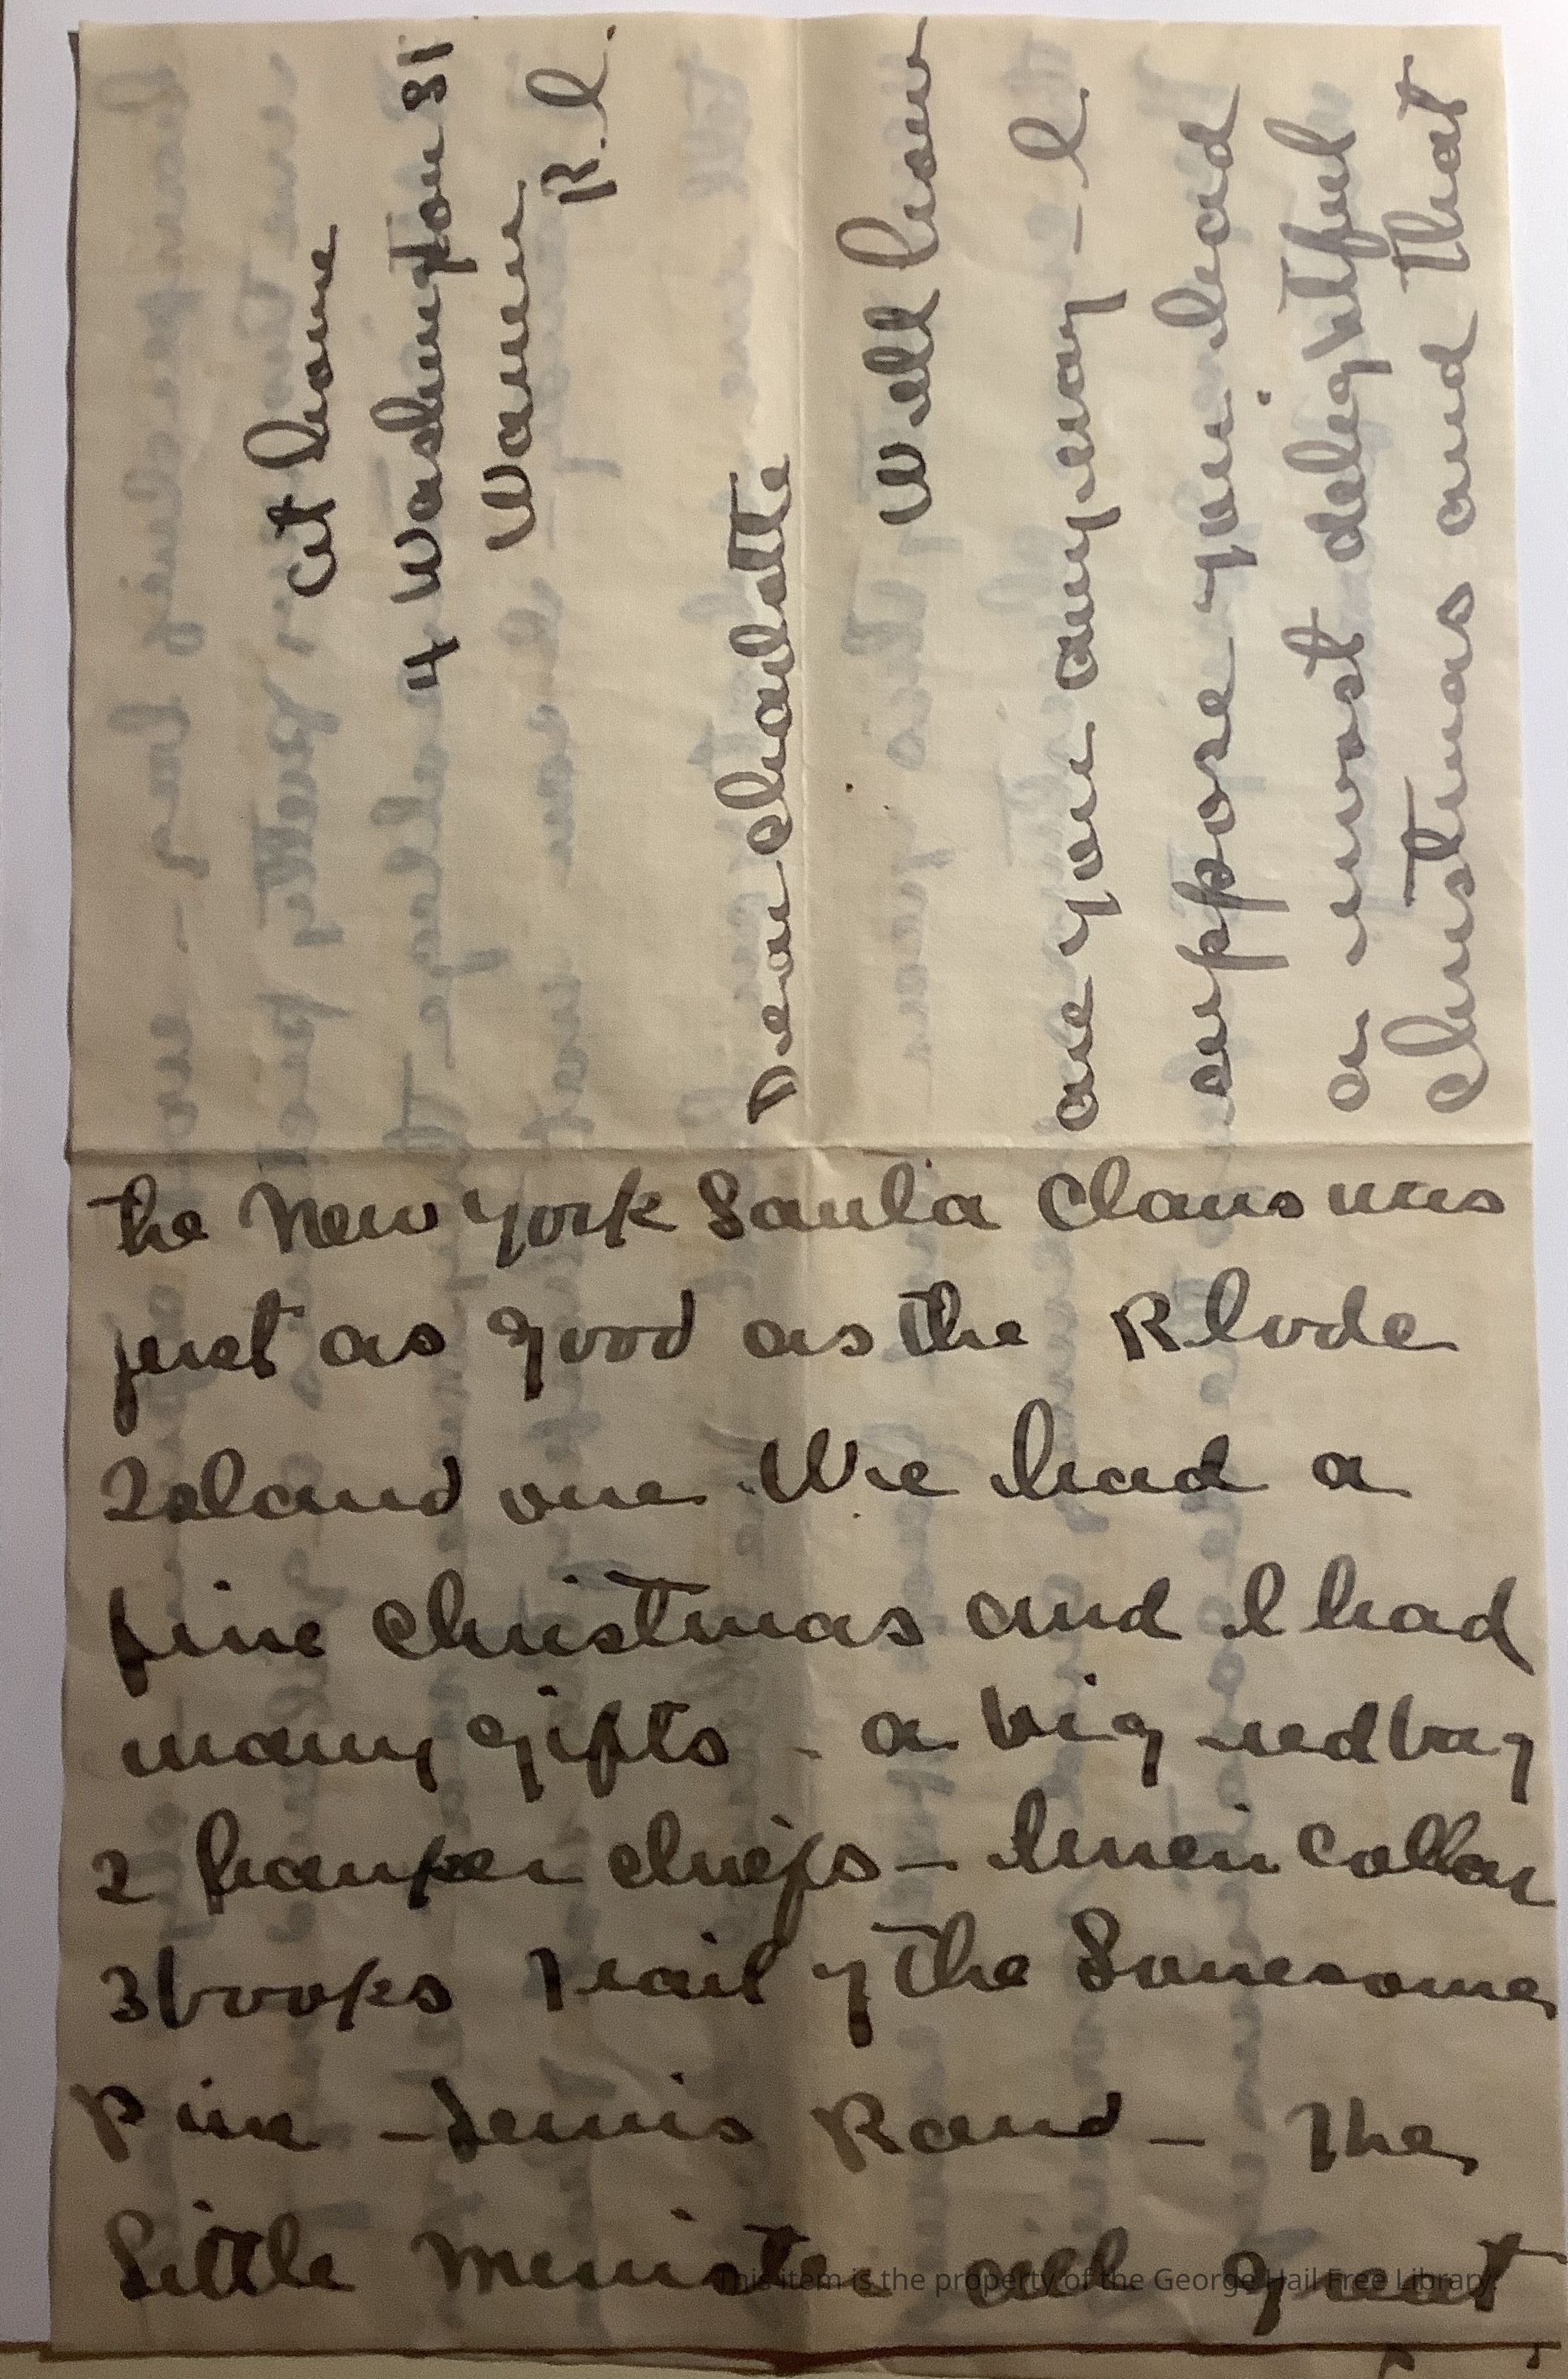 At home
4 Washington St
Warren
R.I.
Dear Charlotte
Well how
are you anyway - I
suppose you had
a most delightful
Christmas and that
the New York Santa Claus was
just as good as the Rhode
Island one We had a
fine Christmas and I had
many gifts - a big red bag
2 hanker chiefs - linen collar
3 books Trail of the Lonesome
Pine - Lewis Rand - The
Little Minister all great
This item is the property of the George Hail Free Library.